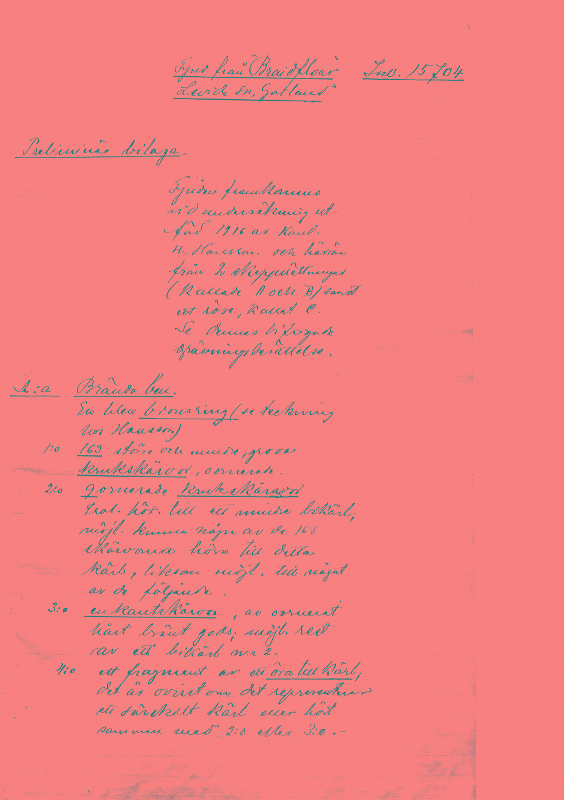 Fynd från "Braidfloar Inv. 15704
Levide sn, Gotland"
Preliminär bilaga.
Fynden framkommo
vid undersökning ut-
förd 1916 av Kand.
H. Hansson och härröra
från 2 skeppssättningar
(kallade A och B) samt
ett röse, kallat C.
Se dennes bifogade
grävningsberättelse.
A:a Brända ben.
En liten bronsring (se teckning
hos Hansson)
1:o 163 större och mindre, grova
krukskärvor, oornerade.
2:o 9 ornerade krukskärvor
trol. hör. till ett mindre bikärl;
möjl. kunna några av de 163
skärvorna höra till detta
kärl, liksom möjl. till något
av de följande.
3:o en kantskärva, av oornerat
hårt bränt gods; möjl. rest
av ett bikärl n:r 2.
4:o ett fragment av ett öra till kärl;
det är ovisst om det representerar
ett särskilt kärl eller hört
samman med 2:o eller 3:o.-